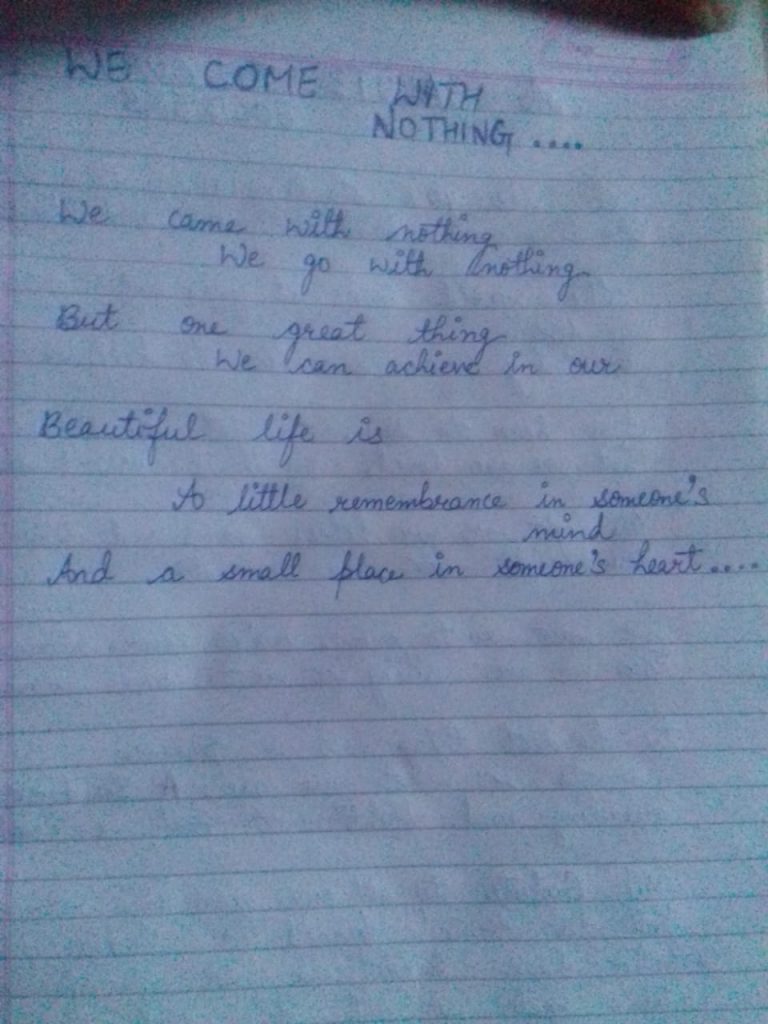 WE COME WITH
NOTHING ....
We came with nothing
We go with nothing
But one great thing
We can achieve in our
Beautiful life is
A little remembrance in someone's
mind
And a small place in someone's heart....